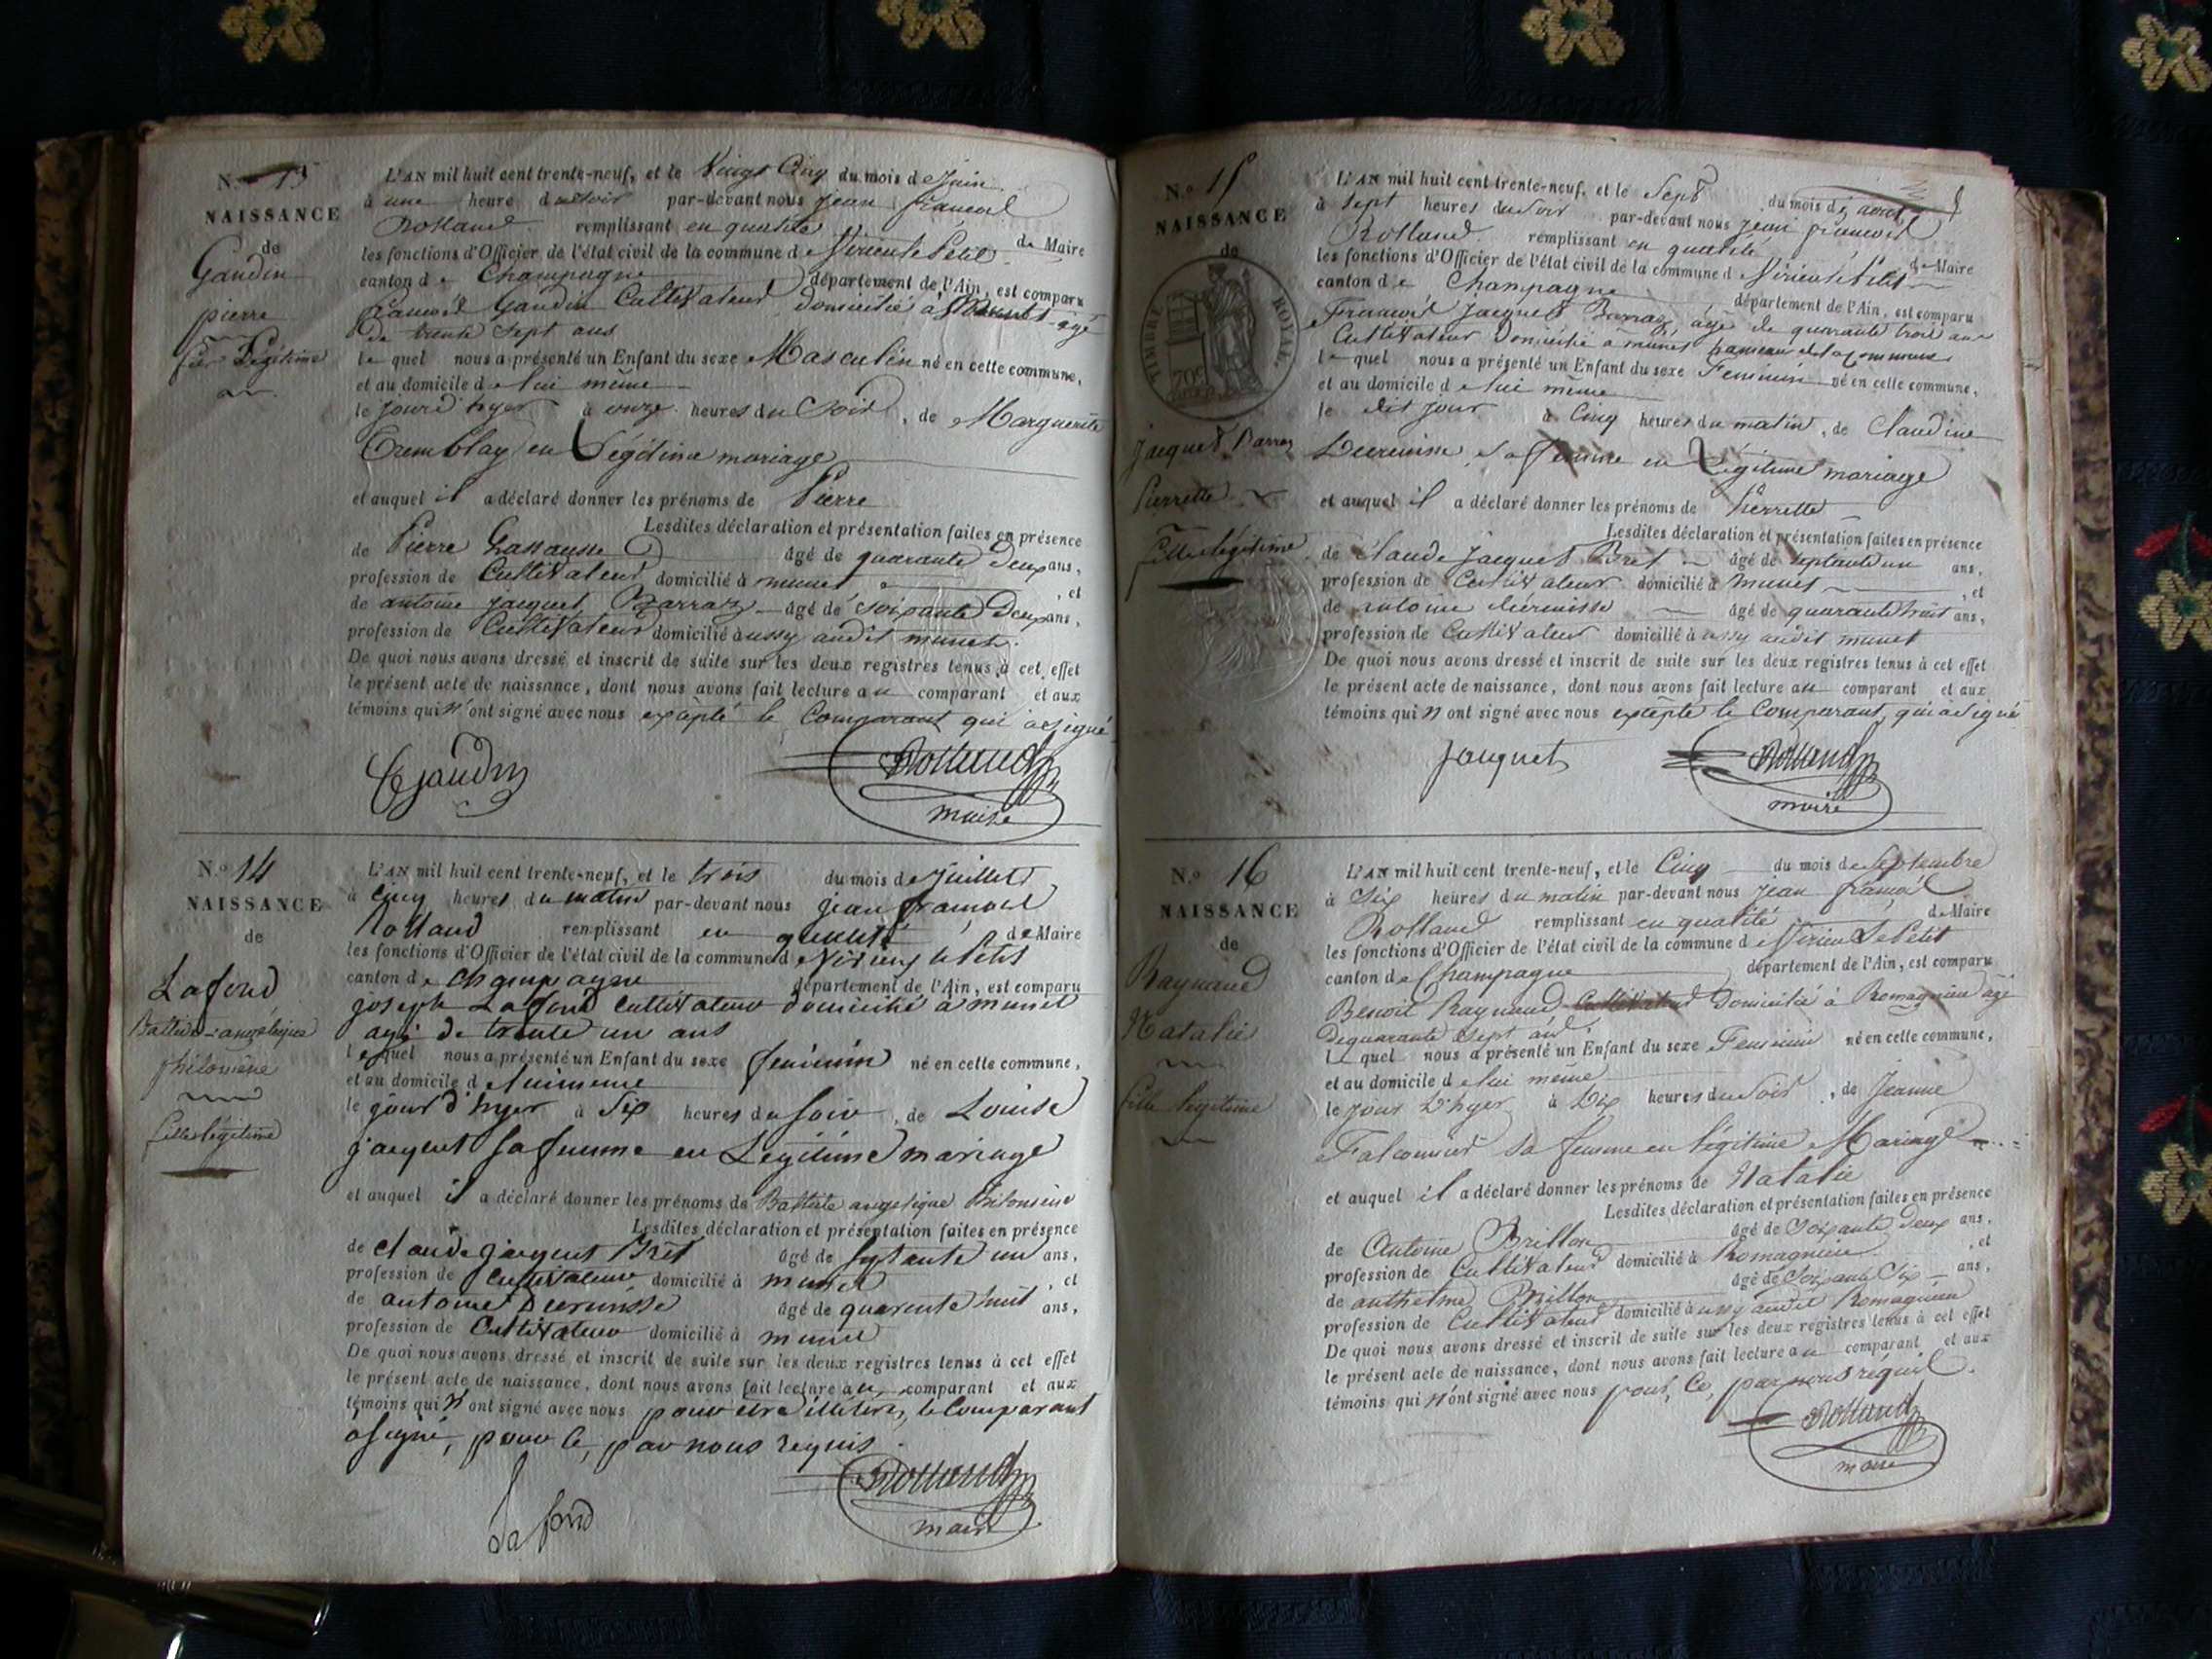 N.º 13
NAISSANCE
de
Gaudin
pierre
fils Légitime
L'AN mil huit cent trente-neuf, et le Vingt Cinq du mois de Juin
à une heure du soir par-devant nous jean françois
Rolland remplissant en qualité de Maire
les fonctions d'Officier de l'état civil de la commune de Virieu le Petit
canton de Champagne département de l'Ain, est comparu
françois Gaudin Cultivateur domicilié à Munet âgé
de trente Sept ans
lequel nous a présenté un Enfant du sexe Masculin né en cette commune,
et au domicile de lui même
le jour d'hyer à onze heures du Soir, de Marguerite
Tremblay en Légitime mariage
et auquel il a déclaré donner les prénoms de Pierre
Lesdites déclaration et présentation faites en présence
de Pierre âgé de quarante Deux ans,
profession de Cultivateur domicilié à munet, et
de antoine jacquet Barraz âgé de soixante Deux ans,
profession de Cultivateur domicilié à ussy audit munet.
De quoi nous avons dressé et inscrit de suite sur les deux registres tenus à cet effet
le présent acte de naissance, dont nous avons fait lecture au comparant et aux
témoins qui n'ont signé avec nous exépté le Comparant qui a signé
Gaudin
Rolland
maire
N.º 14
NAISSANCE
de
Lafond
Battiste-angélique
philomène
fille légitime
L'AN mil huit cent trente-neuf, et le trois du mois de Juillet
à Cinq heures du matin par-devant nous jean françois
Rolland remplissant en qualité de Maire
les fonctions d'Officier de l'état civil de la commune de Virieu le Petit
canton de Champagne département de l'Ain, est comparu
joseph Lafond Cultivateur domicilié à munet
agé de trente un ans
lequel nous a présenté un Enfant du sexe féminin né en cette commune,
et au domicile de lui meme
le jour d'hyer à Six heures du soir, de Louise
jacquet sa femme en Légitime mariage
et auquel il a déclaré donner les prénoms de Battiste angelique
Lesdites déclaration et présentation faites en présence
de claude jacquet Bret âgé de septante un ans,
profession de Cultivateur domicilié à munet, et
de antoine Décrenisse âgé de quarente huit ans,
profession de Cultivateur domicilié à munet
De quoi nous avons dressé et inscrit de suite sur les deux registres tenus à cet effet
le présent acte de naissance, dont nous avons fait lecture au comparant et aux
témoins qui n'ont signé avec nous pour être illitérés, le Comparant
a signé, pour ce, par nous requis.
Lafond
Rolland
maire
N.º 15
NAISSANCE
de
TIMBRE ROYAL
70c
Jacquet Barraz
Pierrette
fille légitime
L'AN mil huit cent trente-neuf, et le Sept du mois d'août
à sept heures du Soir par-devant nous jean françois
Rolland remplissant en qualité de Maire
les fonctions d'Officier de l'état civil de la commune de Virieu le Petit
canton de Champagne département de l'Ain, est comparu
François Jacquet Barraz, âgé de quarante trois ans
Cultivateur Domicilié à munet hameau de la Commune
lequel nous a présenté un Enfant du sexe Feminin né en cette commune,
et au domicile de lui même
le dit jour à Cinq heures du matin, de Claudine
Décrenisse sa femme en Légitime mariage
et auquel il a déclaré donner les prénoms de Pierrette
Lesdites déclaration et présentation faites en présence
de Claude jacquet Bret âgé de septante un ans,
profession de Cultivateur domicilié à munet, et
de antoine Décrenisse âgé de quarante huit ans,
profession de Cultivateur domicilié à ussy audit munet
De quoi nous avons dressé et inscrit de suite sur les deux registres tenus à cet effet
le présent acte de naissance, dont nous avons fait lecture au comparant et aux
témoins qui n'ont signé avec nous exépté le Comparant, qui a signé
Jacquet
Rolland
maire
N.º 16
NAISSANCE
de
Raynaud
Natalie
fille légitime
L'AN mil huit cent trente-neuf, et le Cinq du mois de Septembre
à Six heures du matin par-devant nous jean françois
Rolland remplissant en qualité de Maire
les fonctions d'Officier de l'état civil de la commune de Virieu Le Petit
canton de Champagne département de l'Ain, est comparu
Benoit Raynaud Cultivateur Domicilié à Romagnieu agé
De quarante Sept ans.
lequel nous a présenté un Enfant du sexe Feminin né en cette commune,
et au domicile de lui même
le jour d'hyer à Dix heures du Soir, de Jeanne
Falconnier sa femme en légitime Mariage
et auquel il a déclaré donner les prénoms de Natalie
Lesdites déclaration et présentation faites en présence
de Antoine Brillon âgé de Soixante Deux ans,
profession de Cultivateur domicilié à Romagnieu, et
de anthelme Brillon âgé de Soixante Six ans,
profession de Cultivateur domicilié à ussy audit Romagnieu
De quoi nous avons dressé et inscrit de suite sur les deux registres tenus à cet effet
le présent acte de naissance, dont nous avons fait lecture au comparant et aux
témoins qui n'ont signé avec nous pour, Ce, par nous réquis.
Rolland
maire